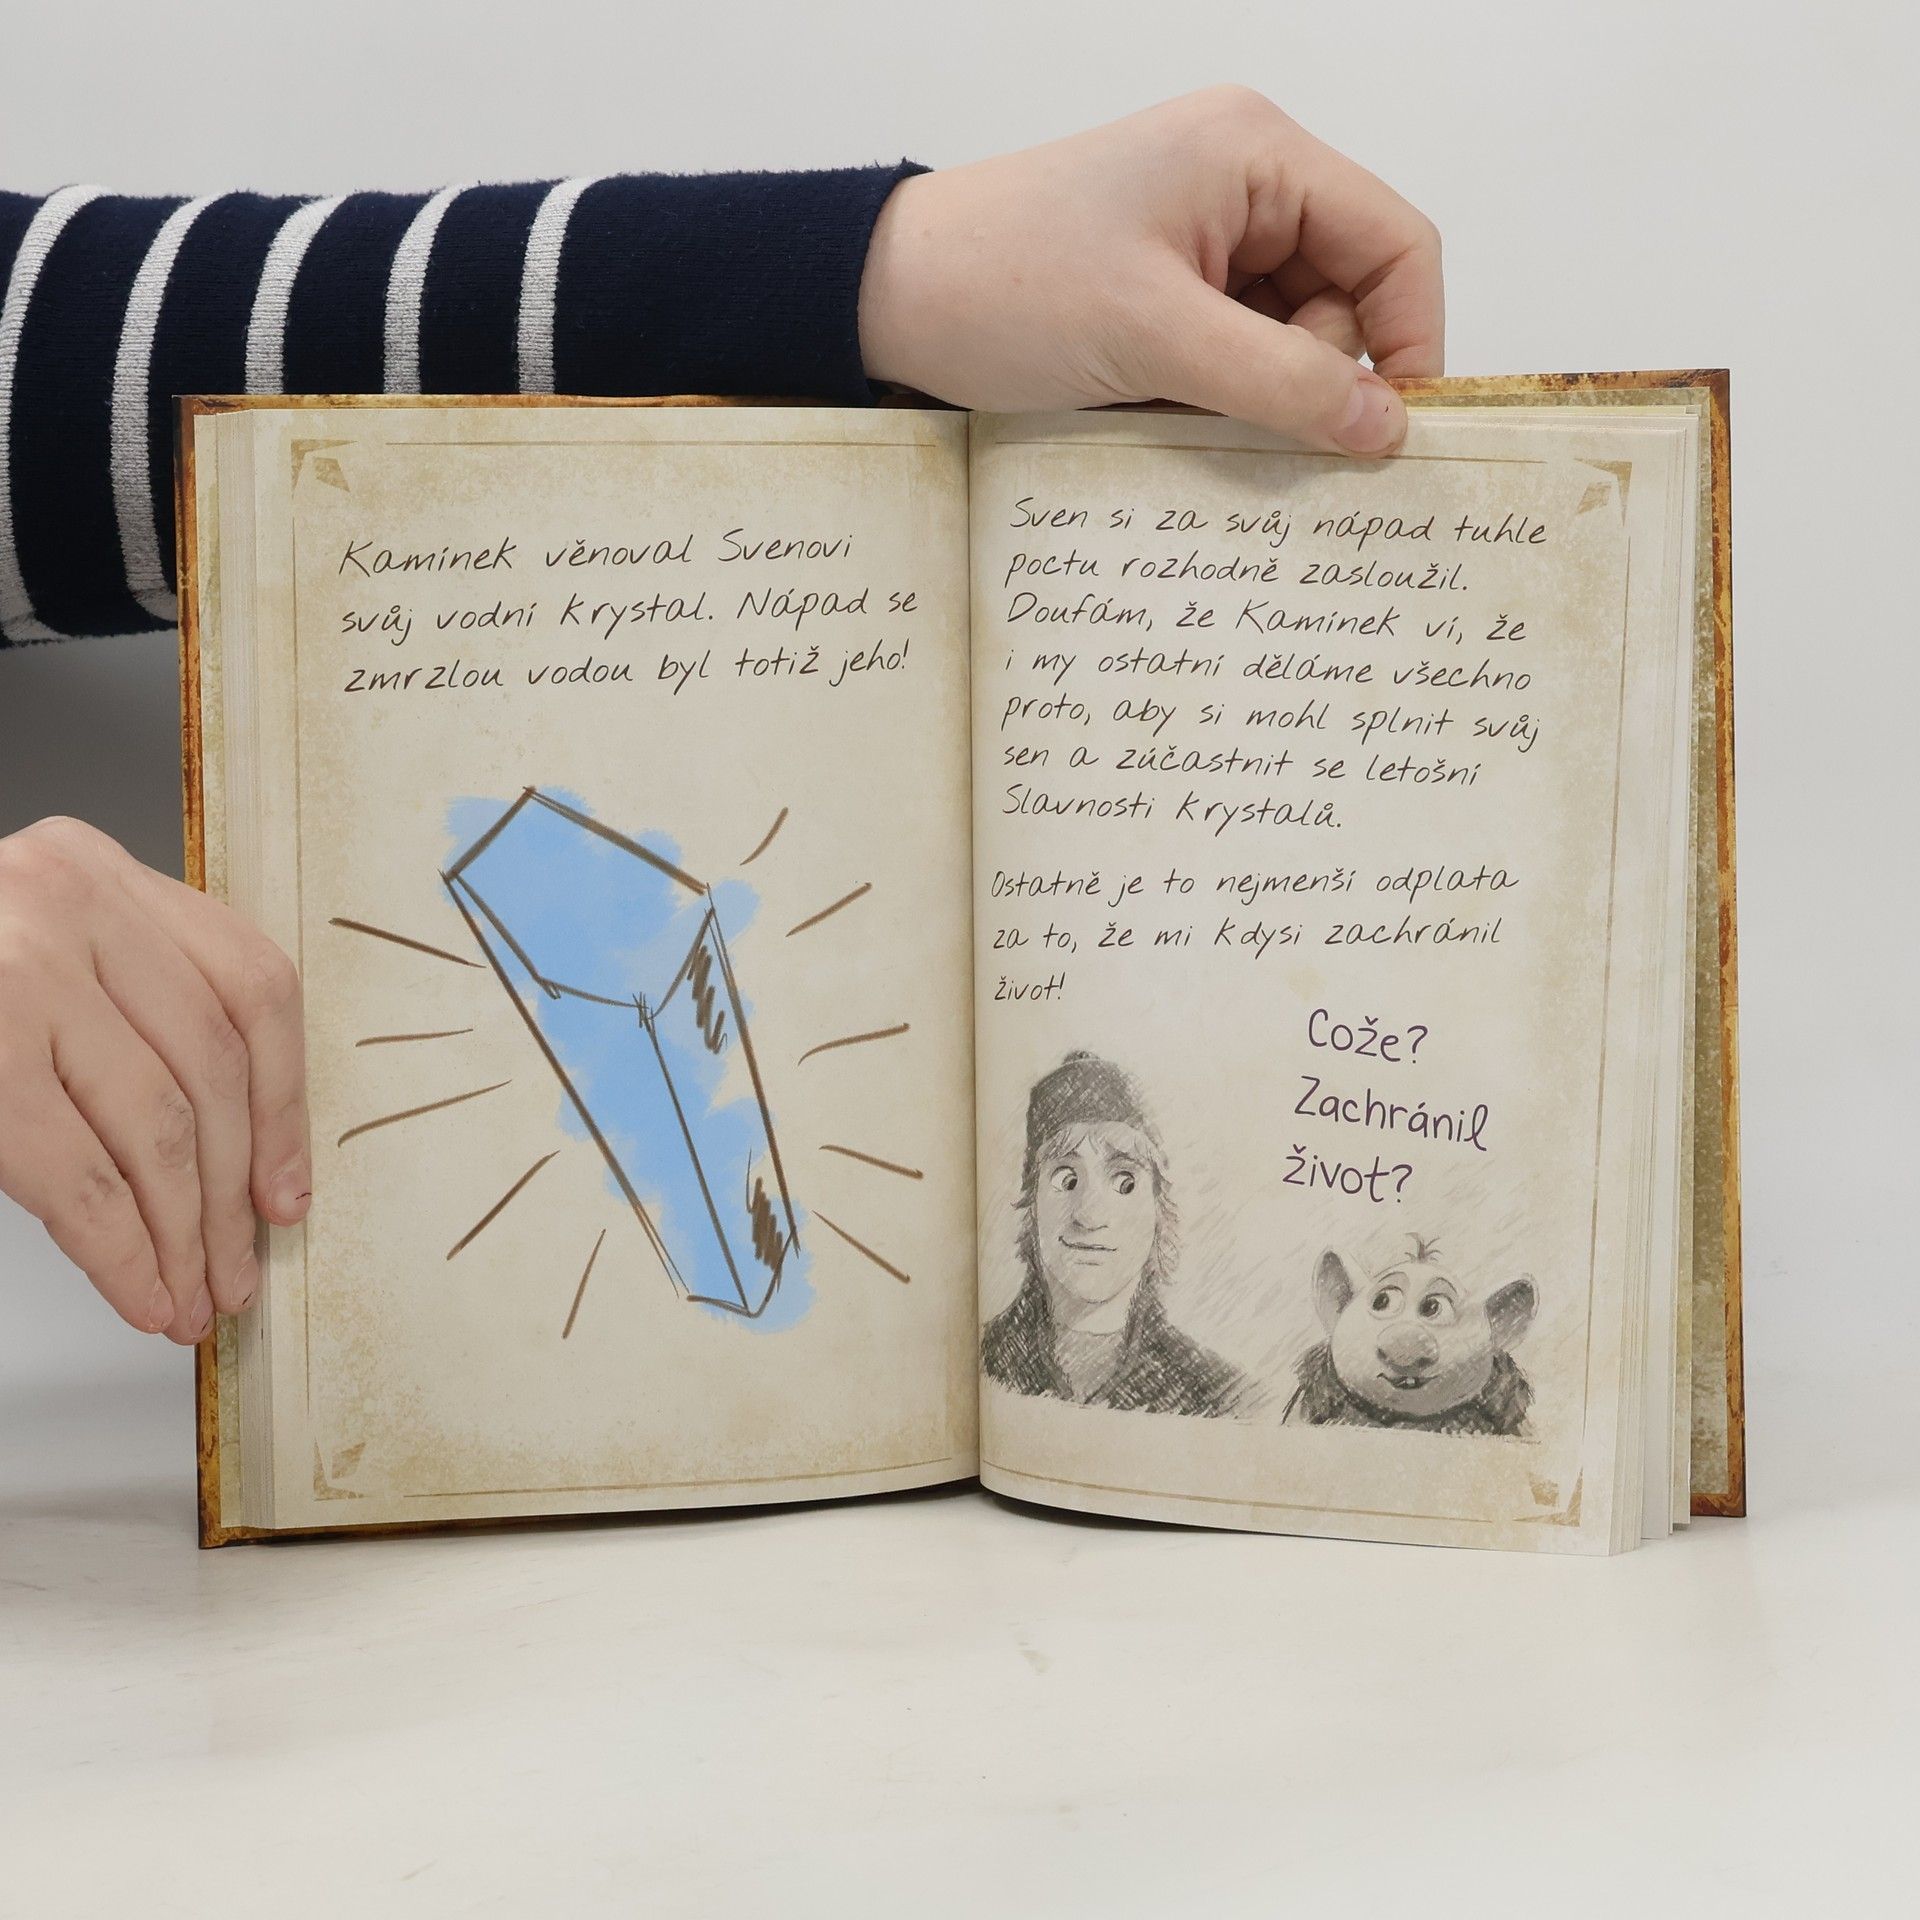 Kamínek věnoval Svenovi
svůj vodní krystal. Nápad se
zmrzlou vodou byl totiž jeho!
Sven si za svůj nápad tuhle
poctu rozhodně zasloužil.
Doufám, že Kamínek ví, že
i my ostatní děláme všechno
proto, aby si mohl splnit svůj
sen a zúčastnit se letošní
Slavnosti krystalů.
Ostatně je to nejmenší odplata
za to, že mi kdysi zachránil
život!
Cože?
Zachránil
život?